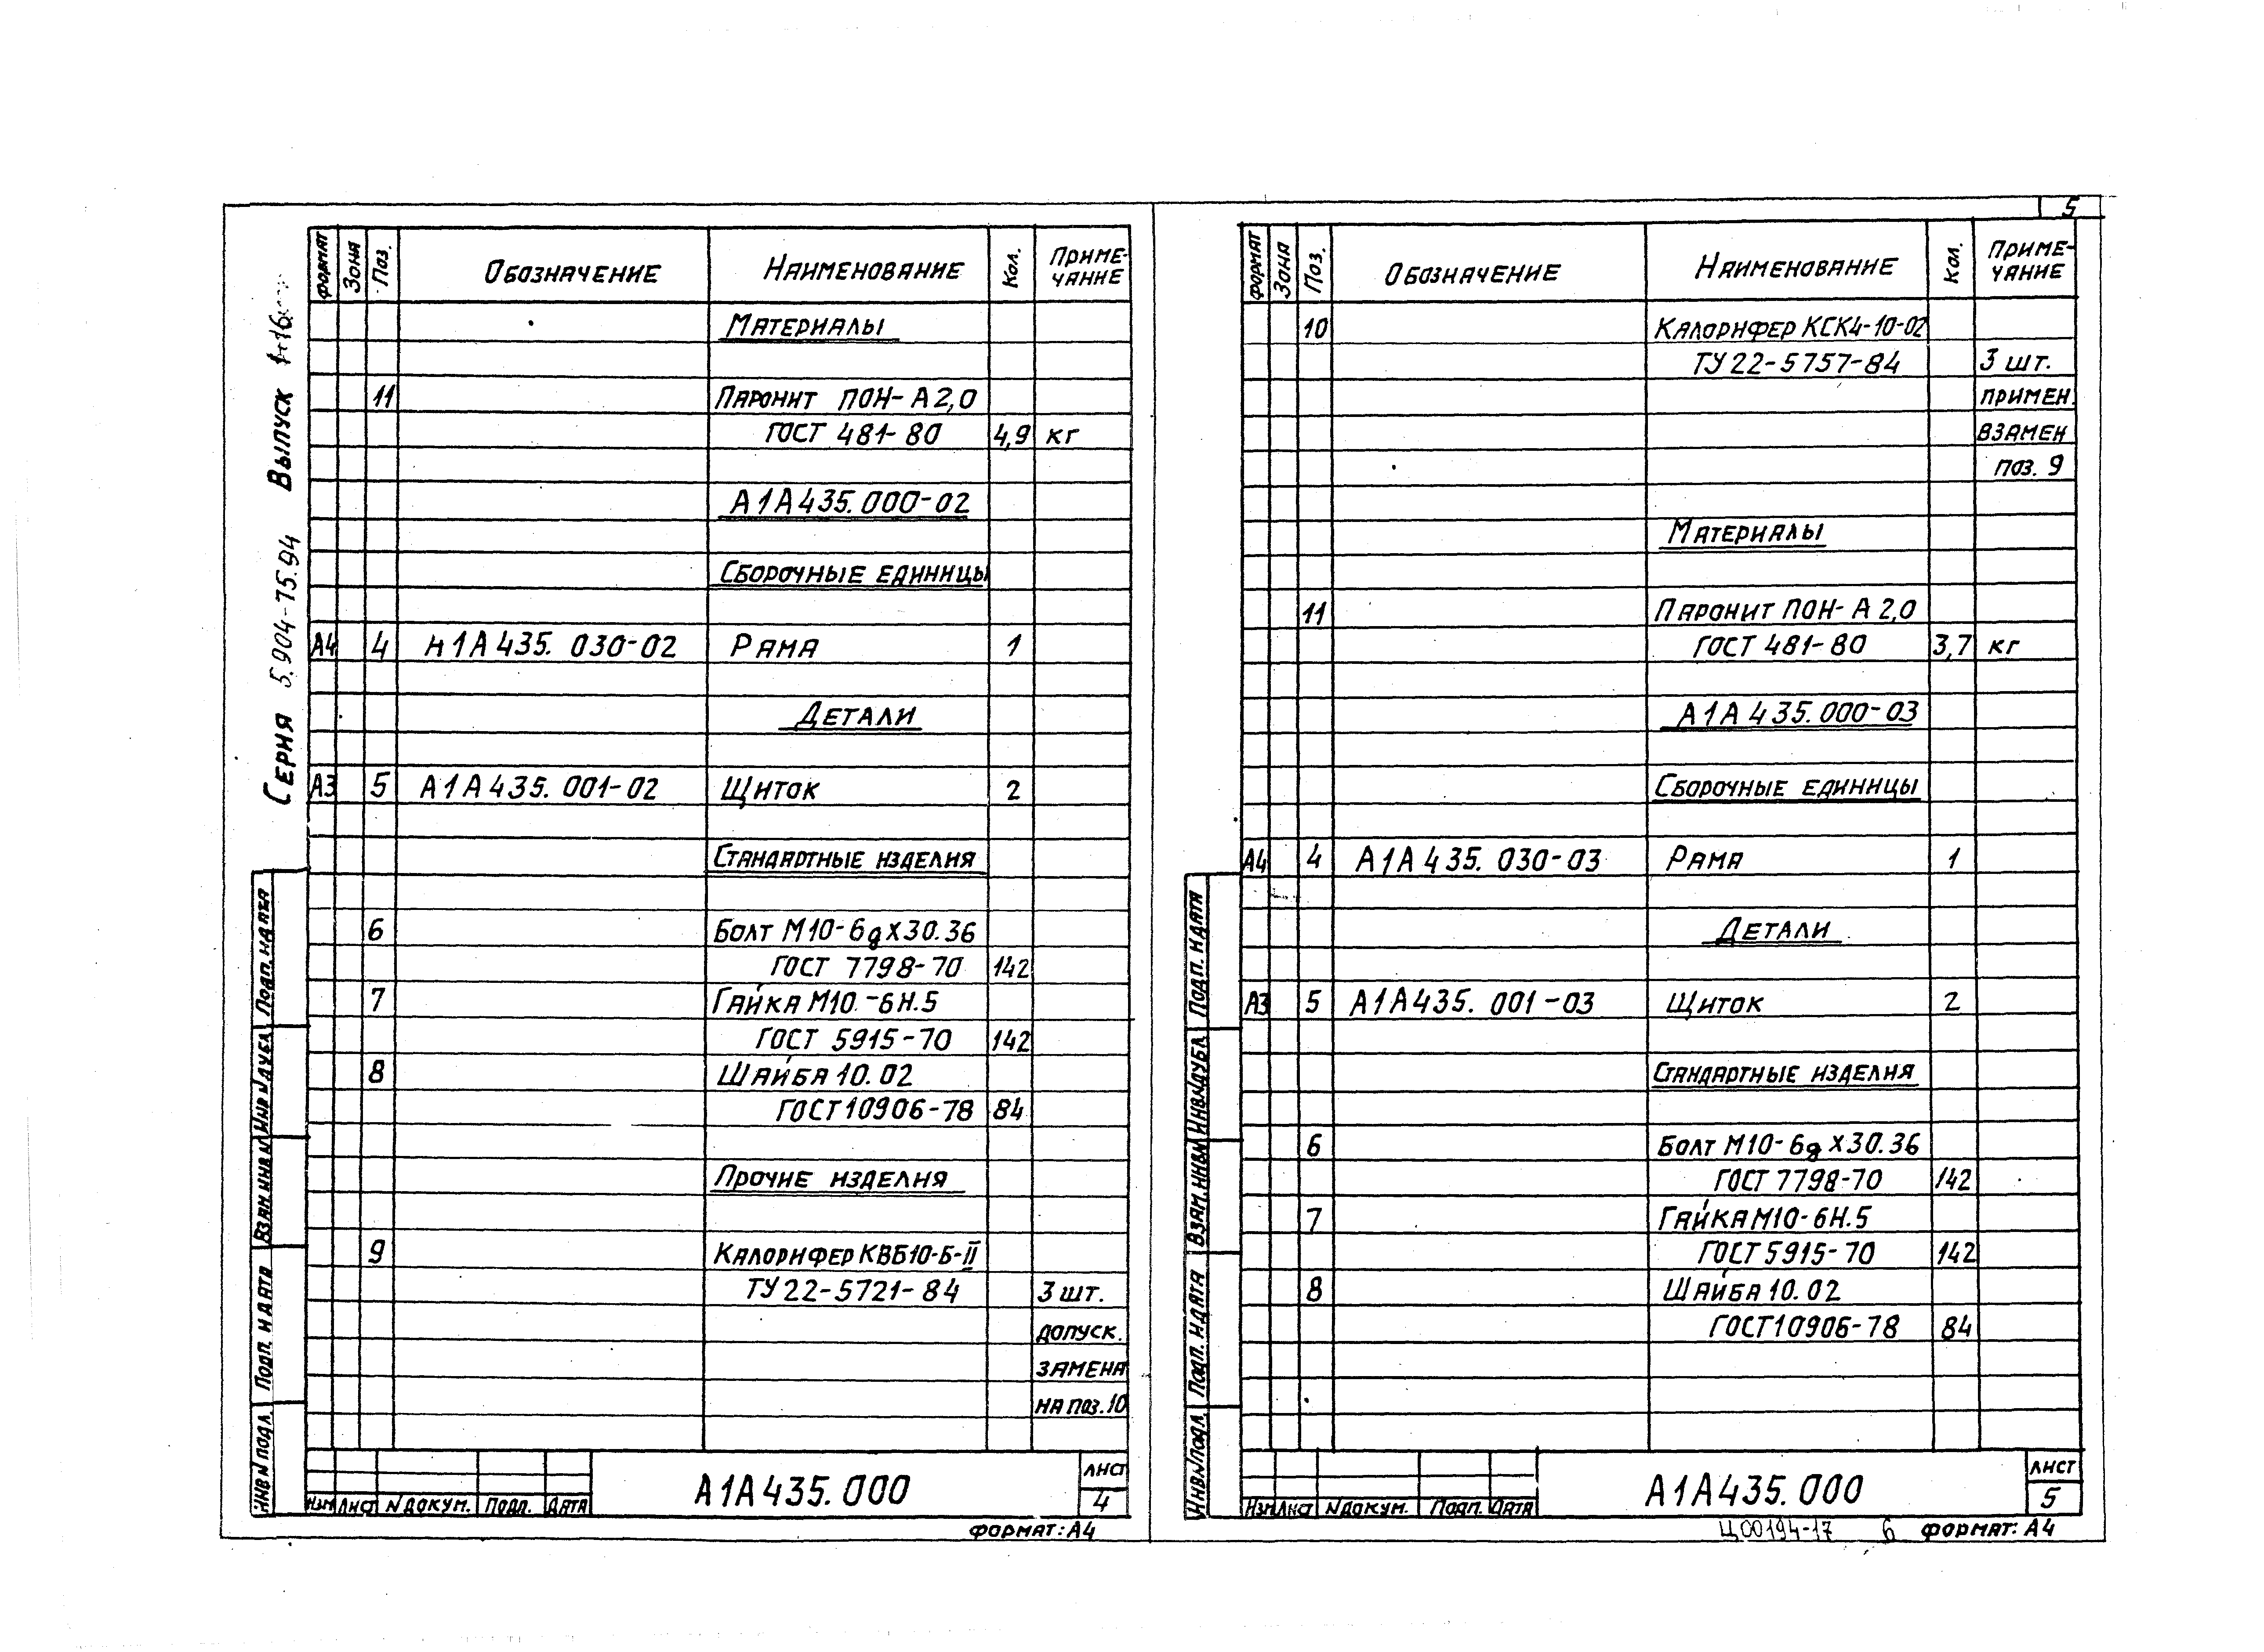 5
Серия 5.904-75.94 Выпуск
Формат Зона Поз. Обозначение Наименование Кол. Приме-
чание
Материалы
11 Паронит ПОН-А 2,0
ГОСТ 481-80 4,9 кг
А1А435.000-02
Сборочные единицы
А4 4 А1А435.030-02 Рама 1
Детали
А3 5 А1А435.001-02 Щиток 2
Стандартные изделия
6 Болт М10-6gх30.36
ГОСТ 7798-70 142
7 Гайка М10-6Н.5
ГОСТ 5915-70 142
8 Шайба 10.02
ГОСТ 10906-78 84
Прочие изделия
9 Калорифер КВБ10-Б-II
ТУ 22-5721-84 3 шт.
допуск.
замена
на поз.10
Инв.№подл. Подп. и дата Взам.инв.№ Инв.№дубл. Подп. и дата
Изм Лист №докум. Подп. Дата
А1А435.000
Лист
4
Формат: А4
Формат Зона Поз. Обозначение Наименование Кол. Приме-
чание
10 Калорифер КСК4-10-02
ТУ 22-5757-84 3 шт.
примен.
взамен
поз. 9
Материалы
11 Паронит ПОН-А 2,0
ГОСТ 481-80 3,7 кг
А1А435.000-03
Сборочные единицы
А4 4 А1А435.030-03 Рама 1
Детали
А3 5 А1А435.001-03 Щиток 2
Стандартные изделия
6 Болт М10-6gх30.36
ГОСТ 7798-70 142
7 Гайка М10-6Н.5
ГОСТ 5915-70 142
8 Шайба 10.02
ГОСТ 10906-78 84
Инв.№подл. Подп. и дата Взам.инв.№ Инв.№дубл. Подп. и дата
Изм Лист №докум. Подп. Дата
А1А435.000
Лист
5
Ц00194-17 6 Формат: А4